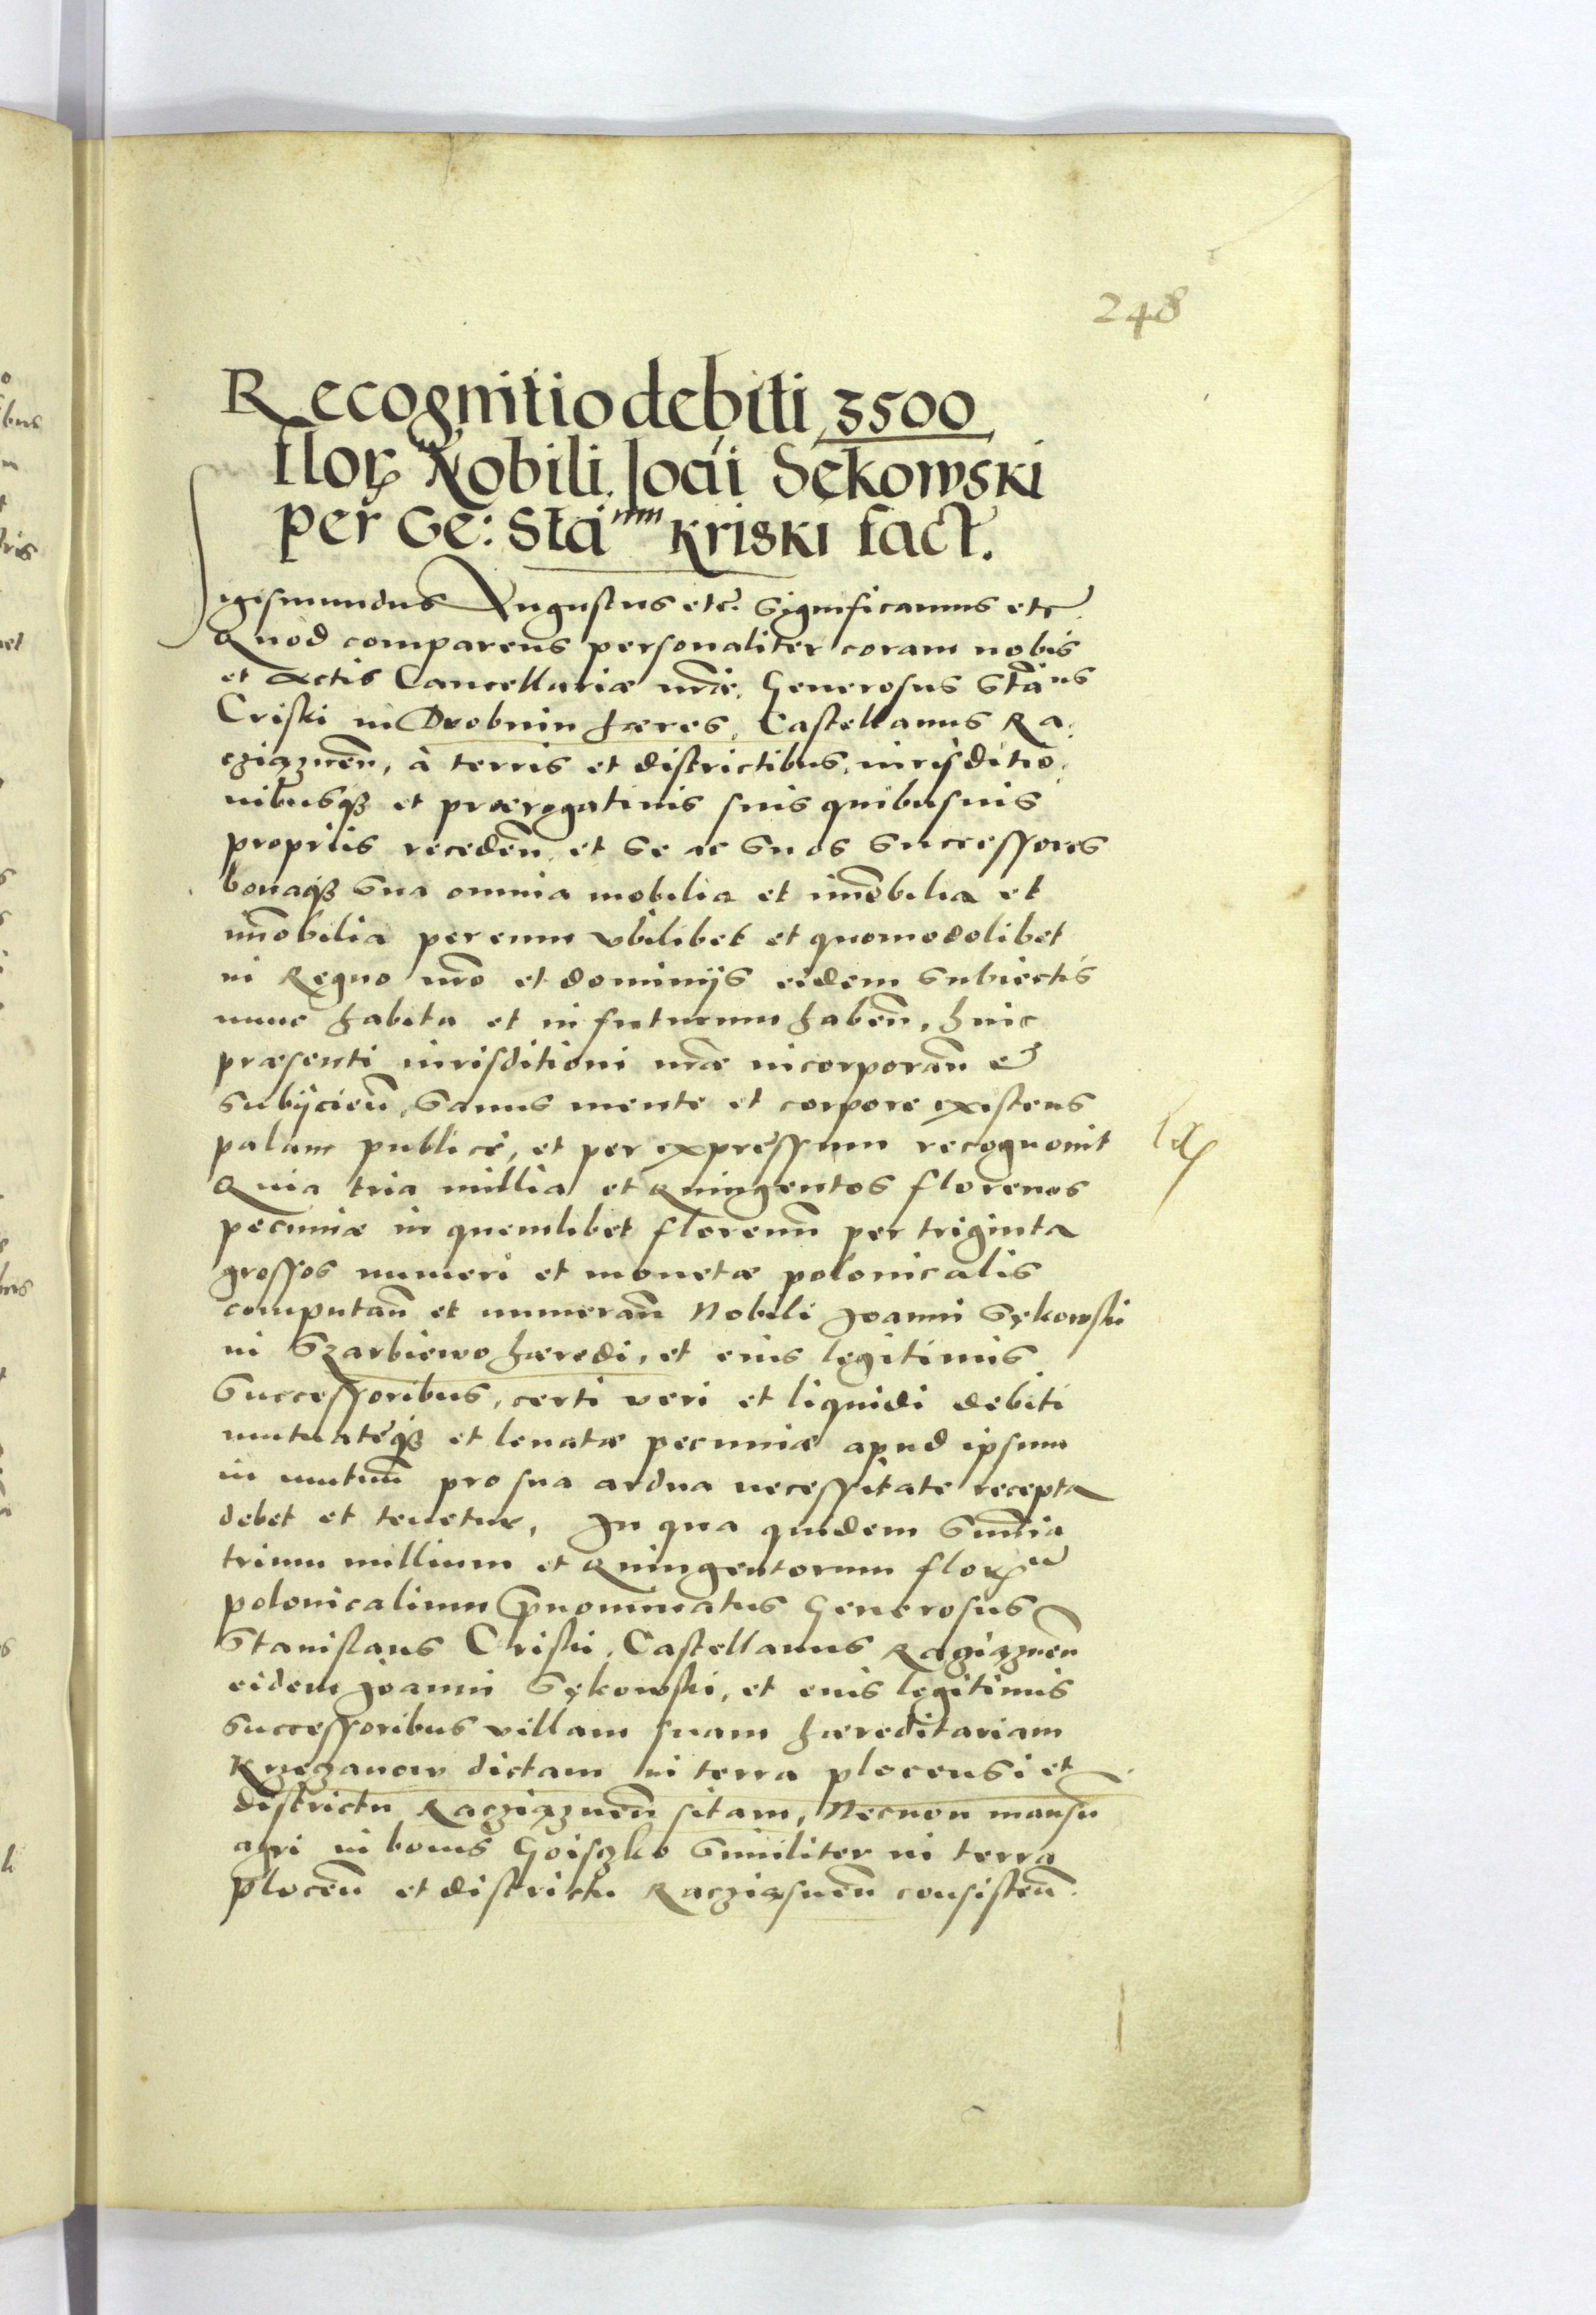 248
Recognitio debiti 3500
florꝝ Nobili Joãi Sękowski
per Ge: Sta^num Kriski fact.
Sigismundus Augustus etc. Significamus etc
Quod comparens personaliter coram nobis
et Actis Cancellariæ nr̃æ. Generosus Stã^us
Criski in Drobnin hæres, Castellanus Ra
cziązneñ, à terris et districtibus, iurisditio
nibusqꝫ et prærogatiuis suis quibusuis
proprijs recedeñ et se ac suos successores
bonaqꝫ sua omnia mobilia et im̃obilia et
im̃obilia per eum vbilibet et quomodolibet
in Regno nr̃o et dominijs eidem subiectis
nunc habita et in futurum habeñ, huic
præsenti iurisditioni nr̃æ incorporañ et
subijcieñ, sanus mente et corpore existens
palam publicè, et per expressum recognouit
Quia tria millia et quingentos florenos
pecuniæ in quemlibet florenũ per triginta
grossos numeri et monetæ polonicalis
computañ et numerañ Nobili Joanni Sękowski
in Szarbiewo hæredi, et eius legitimis
successoribus, certi veri et liquidi debiti
mutuatęqꝫ et leuatæ pecuniæ apud ipsum
in mutuũ pro sua ardua necessitate recepta
debet et tenetur, In qua quidem sum̃a
trium millium et quingentorum florꝝ
polonicalium p̃nominatus Generosus
Stanislaus Criski, Castellanus Racziązneñ
eidem Joanni Sękowski, et eius legitimis
successoribus villam suam hæreditariam
Krzeczanow dictam in terra plocensi et
districtu Racziązneñ sitam, Necnon mansũ
agri in bonis Goisczko similiter in terra
ploceñ et districtu Racziąsneñ consisteñ.